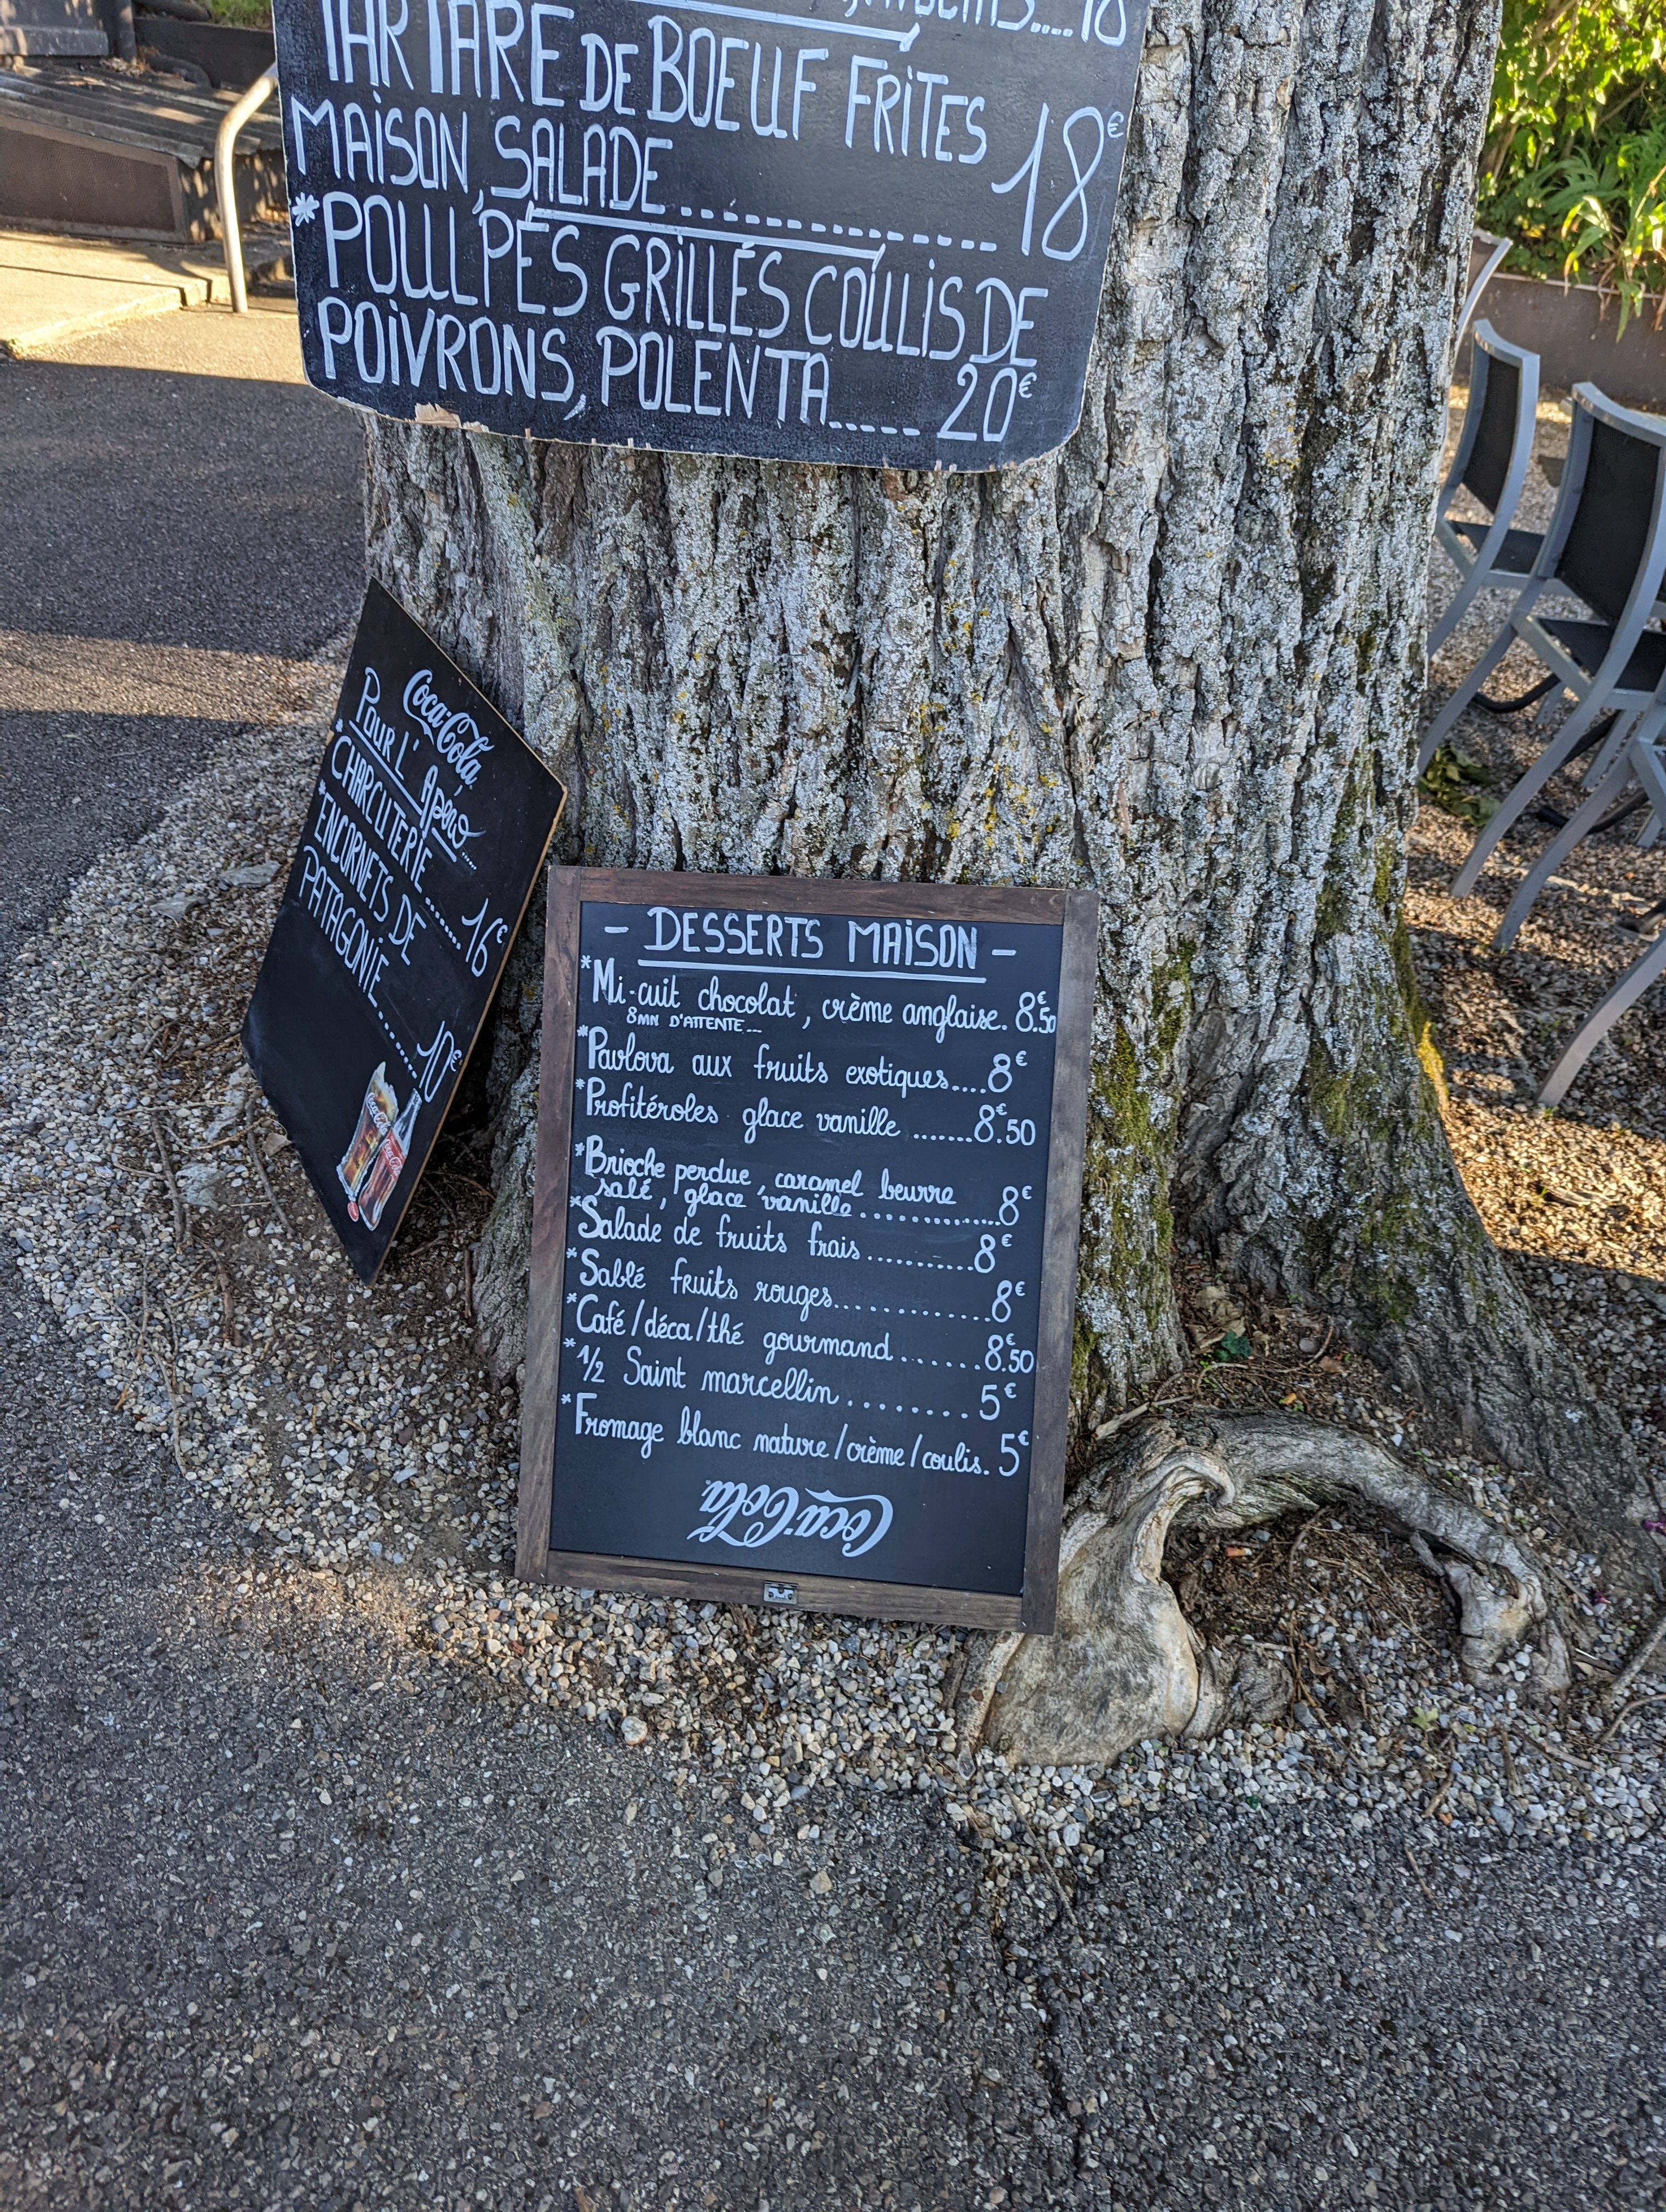 18
TARTARE DE BOEUF FRITES
MAISON, SALADE.................. 18€
*POULPES GRILLÉS COULIS DE
POIVRONS, POLENTA...... 20€
Coca-Cola
POUR L'Apero.....
*CHARCUTERIE....... 16€
*ENCORNETS DE
PATAGONIE.......... 10€
Coca-Cola
Coca-Cola
- DESSERTS MAISON -
*Mi-cuit chocolat, crème anglaise. 8€.50
8MN D'ATTENTE...
*Pavlova aux fruits exotiques.... 8€
*Profitéroles glace vanille ....... 8€.50
*Brioche perdue, caramel beurre
salé, glace vanille............... 8€
*Salade de fruits frais........... 8€
*Sablé fruits rouges.............. 8€
*Café/déca/thé gourmand....... 8€.50
*1/2 Saint marcellin......... 5€
*Fromage blanc nature/crème/coulis. 5€
Coca-Cola